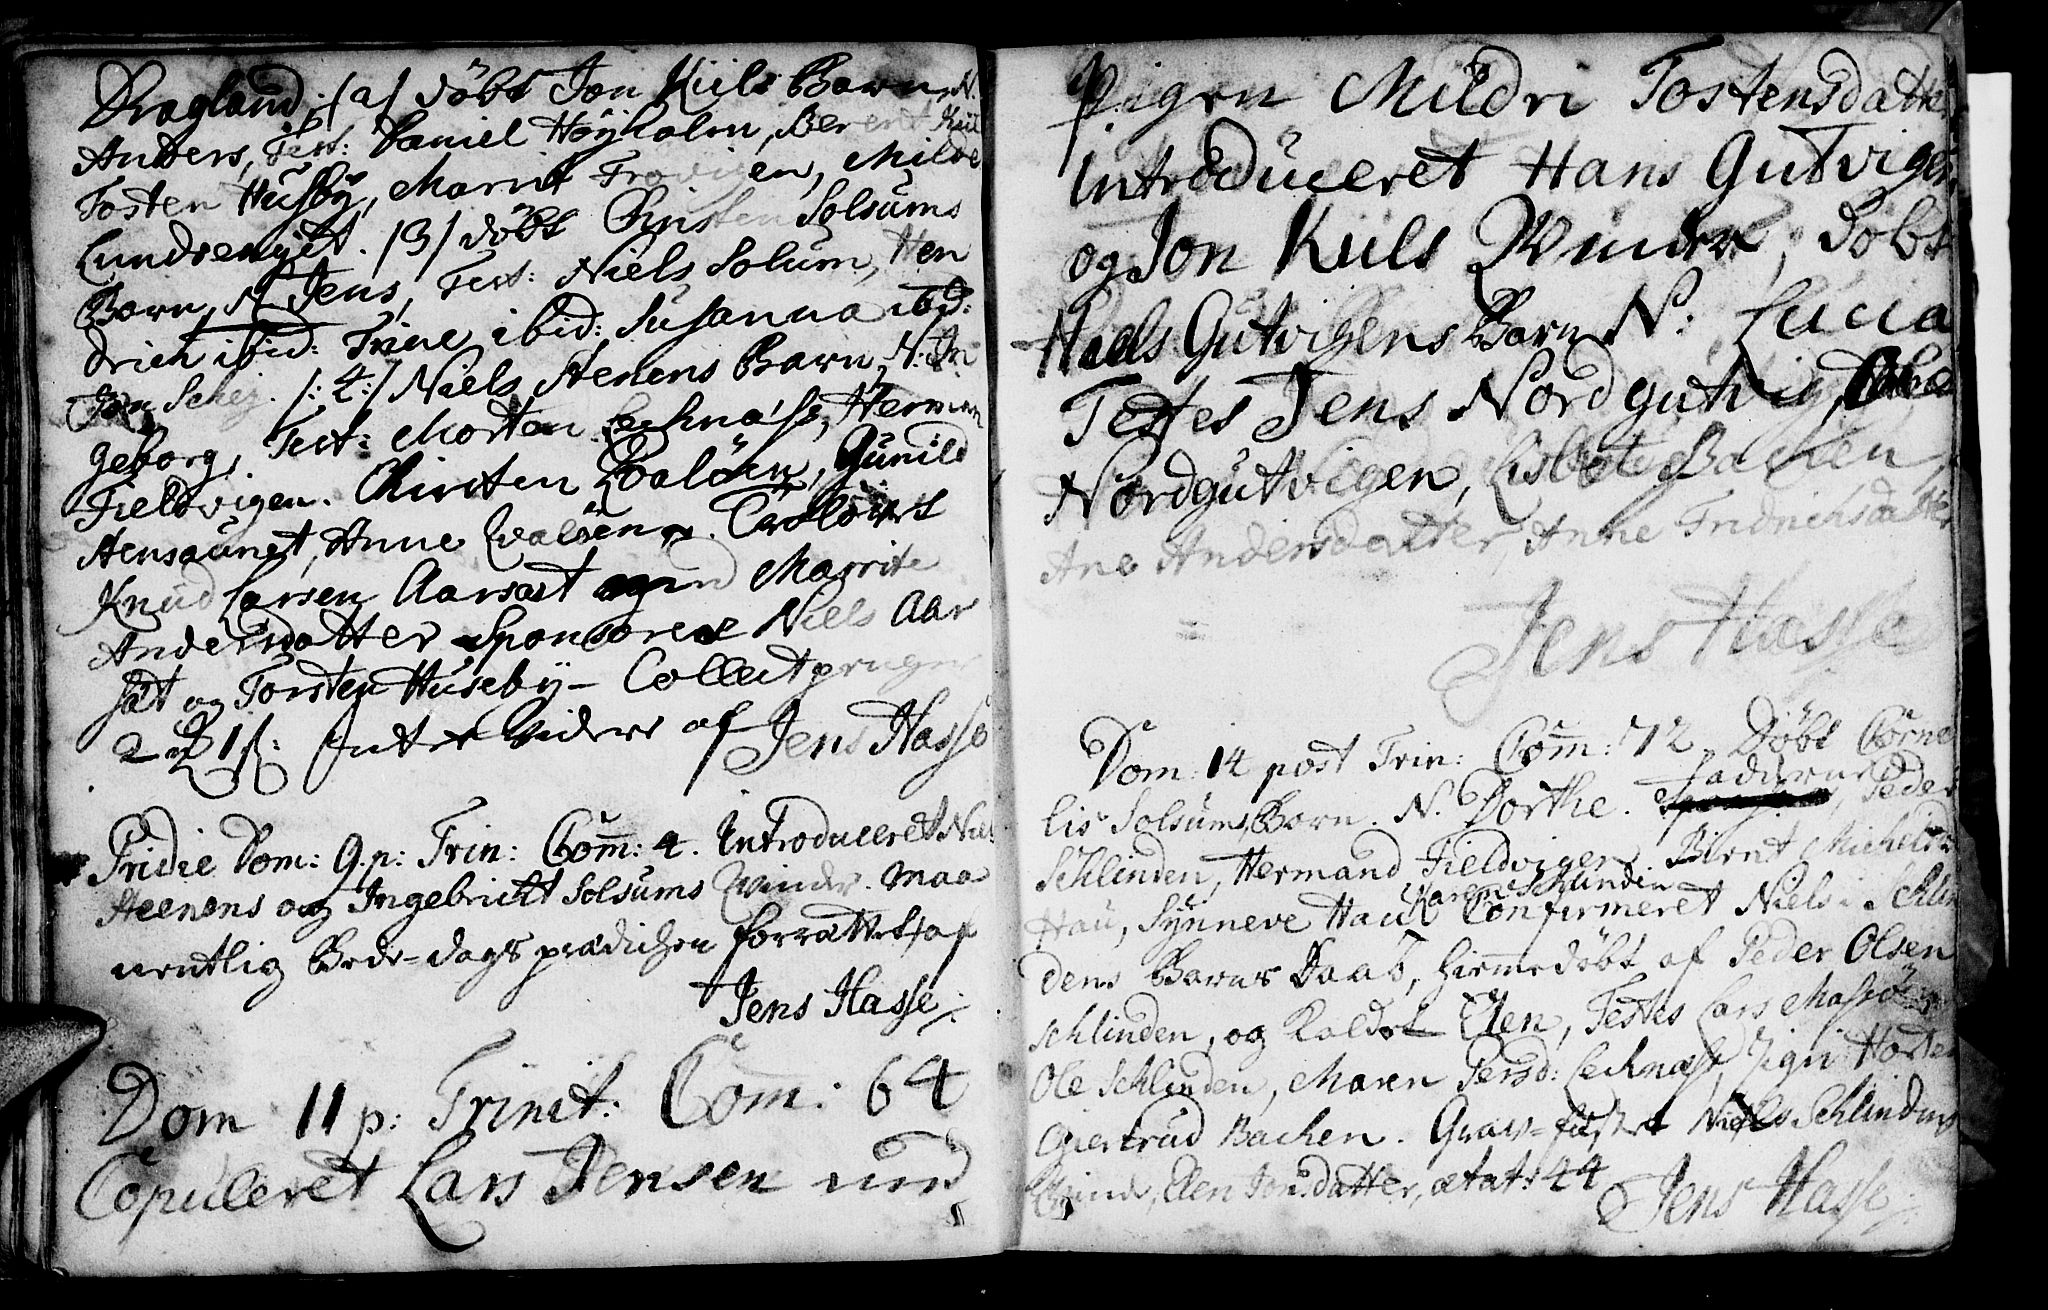 Dragland. /a/ döbt Jon Kiils Barn, N.
Anders, Test: Daniel Höyholm, Berent Kiil
Tosten Husby, Marrit Trovigen, Mildri
Lundsenget. /3/ döbt Christen Solsums
Barn, N Jens, Test: Niels Solum, Hen
drich ibid: Trine ibid: Susanna ibid:
Jon Schej. /:4:/ Niels Stenens Barn, N: In
geborg, Test: Morten Lechnæss, Herman
Fieldvigen. Christen Qvalöen, Gunild
Stensaunet, Anne Qvalöen. Trolovet
Knud Larsen Aarsæt med Marrite
Andersdatter Sponsores Niels Aar
sæt og Torsten Huseby - Collect
2 1 ß: intet videre af Jens Hasse
Pridie Dom: 9. p: Trin: Com̄: 4. Introduceret Niels
Steenens og Ingebricht Solsums Qvinder. Maa
nentlig Bede-dags prædichen forrættet af
Jens Hasse
Dom 11 p: Trinit: Com̄: 64
Copuleret Lars Jensen med
Pigen Mildri Tostensdatter
introduceret Hans Gutvigen
og Jon Kiils Qvinder, döbt
Niels Gutvigens Barn N: Lucia
Testes Jens Nordgutvig,
Nordgutvigen, Lisbet Bachen
Ane Andersdatter, Anne Fridrichsdatter
Jens Hasse
Dom: 14 post Trin: Com̄: 72. Döbt Corne
lis Solsums Barn. N. Dorthe. Fadderne, Peder
Schlinden, Hermand Fieldvigen. Birnt Michelsen
Karen Schlinden
Hau, Synneve Hau. Confirmeret Niels i Schlin
dens Barns Daab, hiemmedöbt af Peder Olsen
Schlinden, og kaldet Elen, Testes Lars
Ole Schlinden, Maren Persd: Lechnæss, Sigri Horten
Giertrud Bachen. Grav-fæstet Niels Schlindens
Qvinde, Elen Jonsdatter, ætat: 44
Jens Hasse